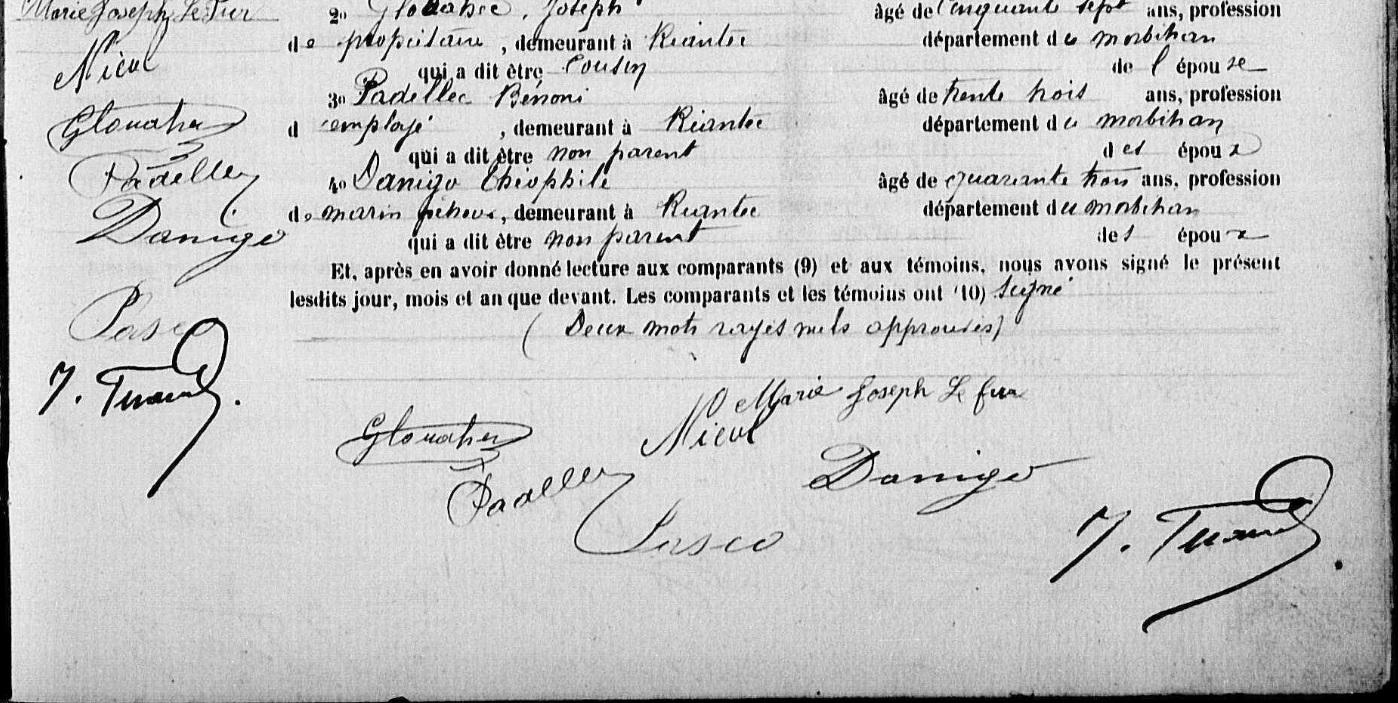 Marie Joseph Le Fur
Nicol
Glouahec
Padellec
Danigo
Pasco
2o Glouahec, Joseph âgé de Cinquante sept ans, profession
de propriétaire, demeurant à Riantec département du morbihan
qui a dit être Cousin de l'épouse
3o Padellec Bénoni âgé de trente trois ans, profession
d'employé, demeurant à Riantec département du morbihan
qui a dit être non parent des époux
4o Danigo Théophile âgé de quarante trois ans, profession
de marin pêcheur, demeurant à Riantec département du morbihan
qui a dit être non parent des époux
Et, après en avoir donné lecture aux comparants (9) et aux témoins, nous avons signé le présent
lesdits jour, mois et an que devant. Les comparants et les témoins ont (10) signé
(Deux mots rayés nuls approuvés)
Marie Joseph Le fur
Glouahec Nicol
Padellec Danigo
Pasco